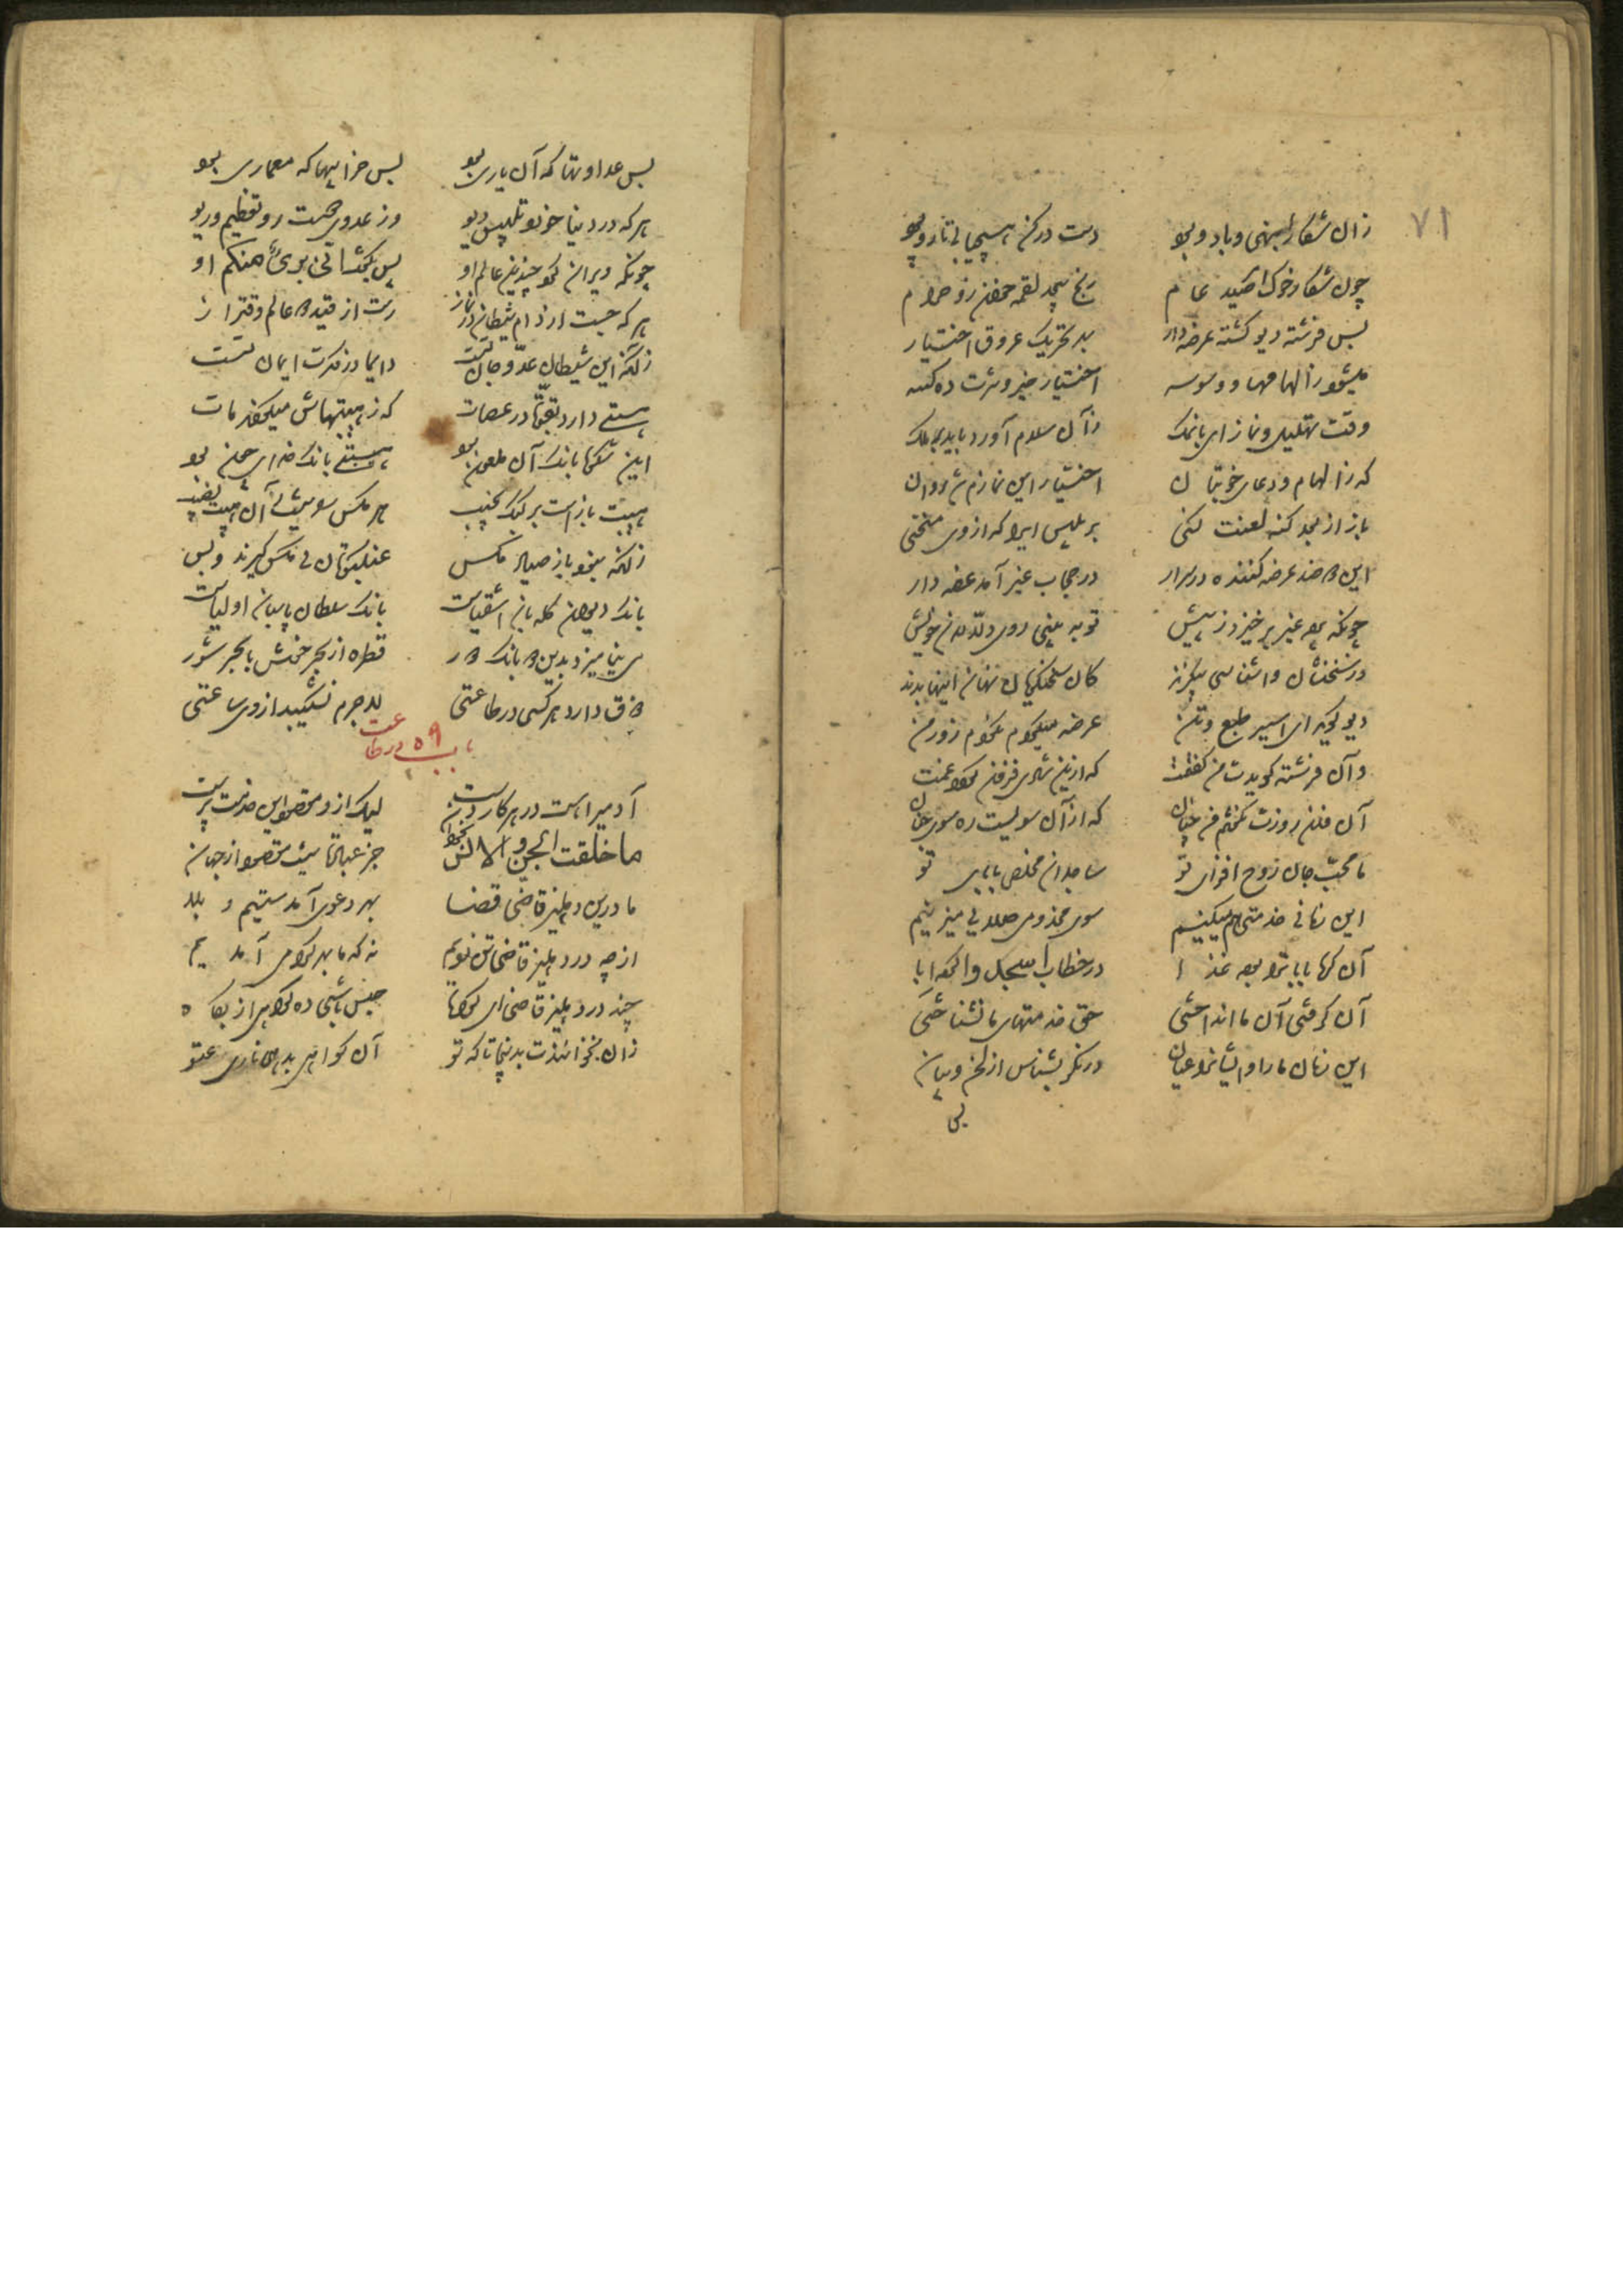 ۷۱
زان شکار انبهی و باد و بود دست در کن هیچ یابی تار و پود
چون شکار خوک آمد صید عام رنج بیحد لقمه خوردن زو حرام
پس فرشته و دیو گشته عرضه دار بهر تحریک عروق اختیار
میشود ز الهامها و وسوسه اختیار خیر و شرت ده کسه
وقت تحلیل نماز ای بانمک زان سلام آورد باید بر ملک
که ز الهام و دعای خوبتان اختیار این نمازم شد روان
باز از بعد گنه لعنت کنی بر بلیس ایرا که ازوی منحنی
این دو ضد عرضه کننده در سرار در حجاب غیب آمد عرضه دار
چونکه پرده غیب برخیزد ز پیش تو ببینی روی دلالان خویش
در سخنشان واشناسی بیگزند کان سخنگویان نهان اینها بدند
دیو گوید ای اسیر طبع و تن عرضه میکردم نکردم زور من
وآن فرشته گویدت من گفتمت که ازین شادی فزون گردد غمت
آن فلان روزت نگفتم من چنان که از آن سویست ره سوی جنان
ما محب جان روح افزای تو ساجدان مخلص بابای تو
این زمانی خدمتی هم میکنیم سوی مخدومی صلایی میزنیم
آن گره بابات را بوده عدا در خطاب اسجدوا کرده ابا
آن گرفتی آن ما انداختی حق خدمتهای ما نشناختی
این زمان ما را و ایشانرا عیان در نگر بشناس از لحن و بیان
بس عداوتها که آن یاری بود بس خرابیها که معماری بود
هر که در دنیا خورد تلبیس دیو وز عدوی دوست رو تعظیم و ریو
چونکه ویران
هر که جست از دام شیطان
زانکه این شیطان عدو جان تست دایما در فکرت ایمان تست
هیبتی دارد در عصات که ز هیبتهاش
این شکوه بانگ آن ملعون بود هیبت بانگ خدایی چون بود
هیبت بازست بر کبک نجیب مر مگس را نیست زان هیبت نصیب
زانکه نبود باز صیاد مگس عنکبوتان می مگس گیرند و بس
بانگ دیوان گله بان اشقیاست بانگ سلطان پاسبان اولیاست
تا نیامیزد بدین دو بانگ دور قطره از بحر خوش با بحر شور
ذوق دارد هر کسی در طاعتی لاجرم نشکیبد ازوی ساعتی
باب ۵۹ در طاعت
آدمی را هست در هر کار دست لیک ازو مقصود این خدمت بدست
ما خلقت الجن و الانس بخوان جز عبادت نیست مقصود از جهان
ما درین دهلیز قاضی قضا بهر دعوی الستیم و بلا
از چه در دهلیز قاضی تن زدیم نه که ما بهر گواهی آمدیم
چند در دهلیز قاضی ای گواه حبس باشی ده گواهی از پگاه
زان بخواندندت بدینجا تا که تو آن گواهی بدهی و ناری عتو